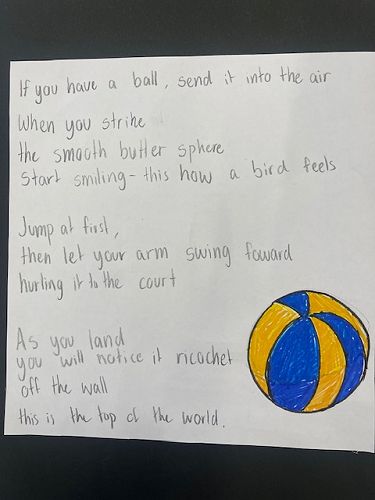 If you have a ball, send it into the air
When you strike
the smooth butter sphere
Start smiling - this how a bird feels
Jump at first,
then let your arm swing foward
hurling it to the court
As you land
you will notice it ricochet
off the wall
this is the top of the world.